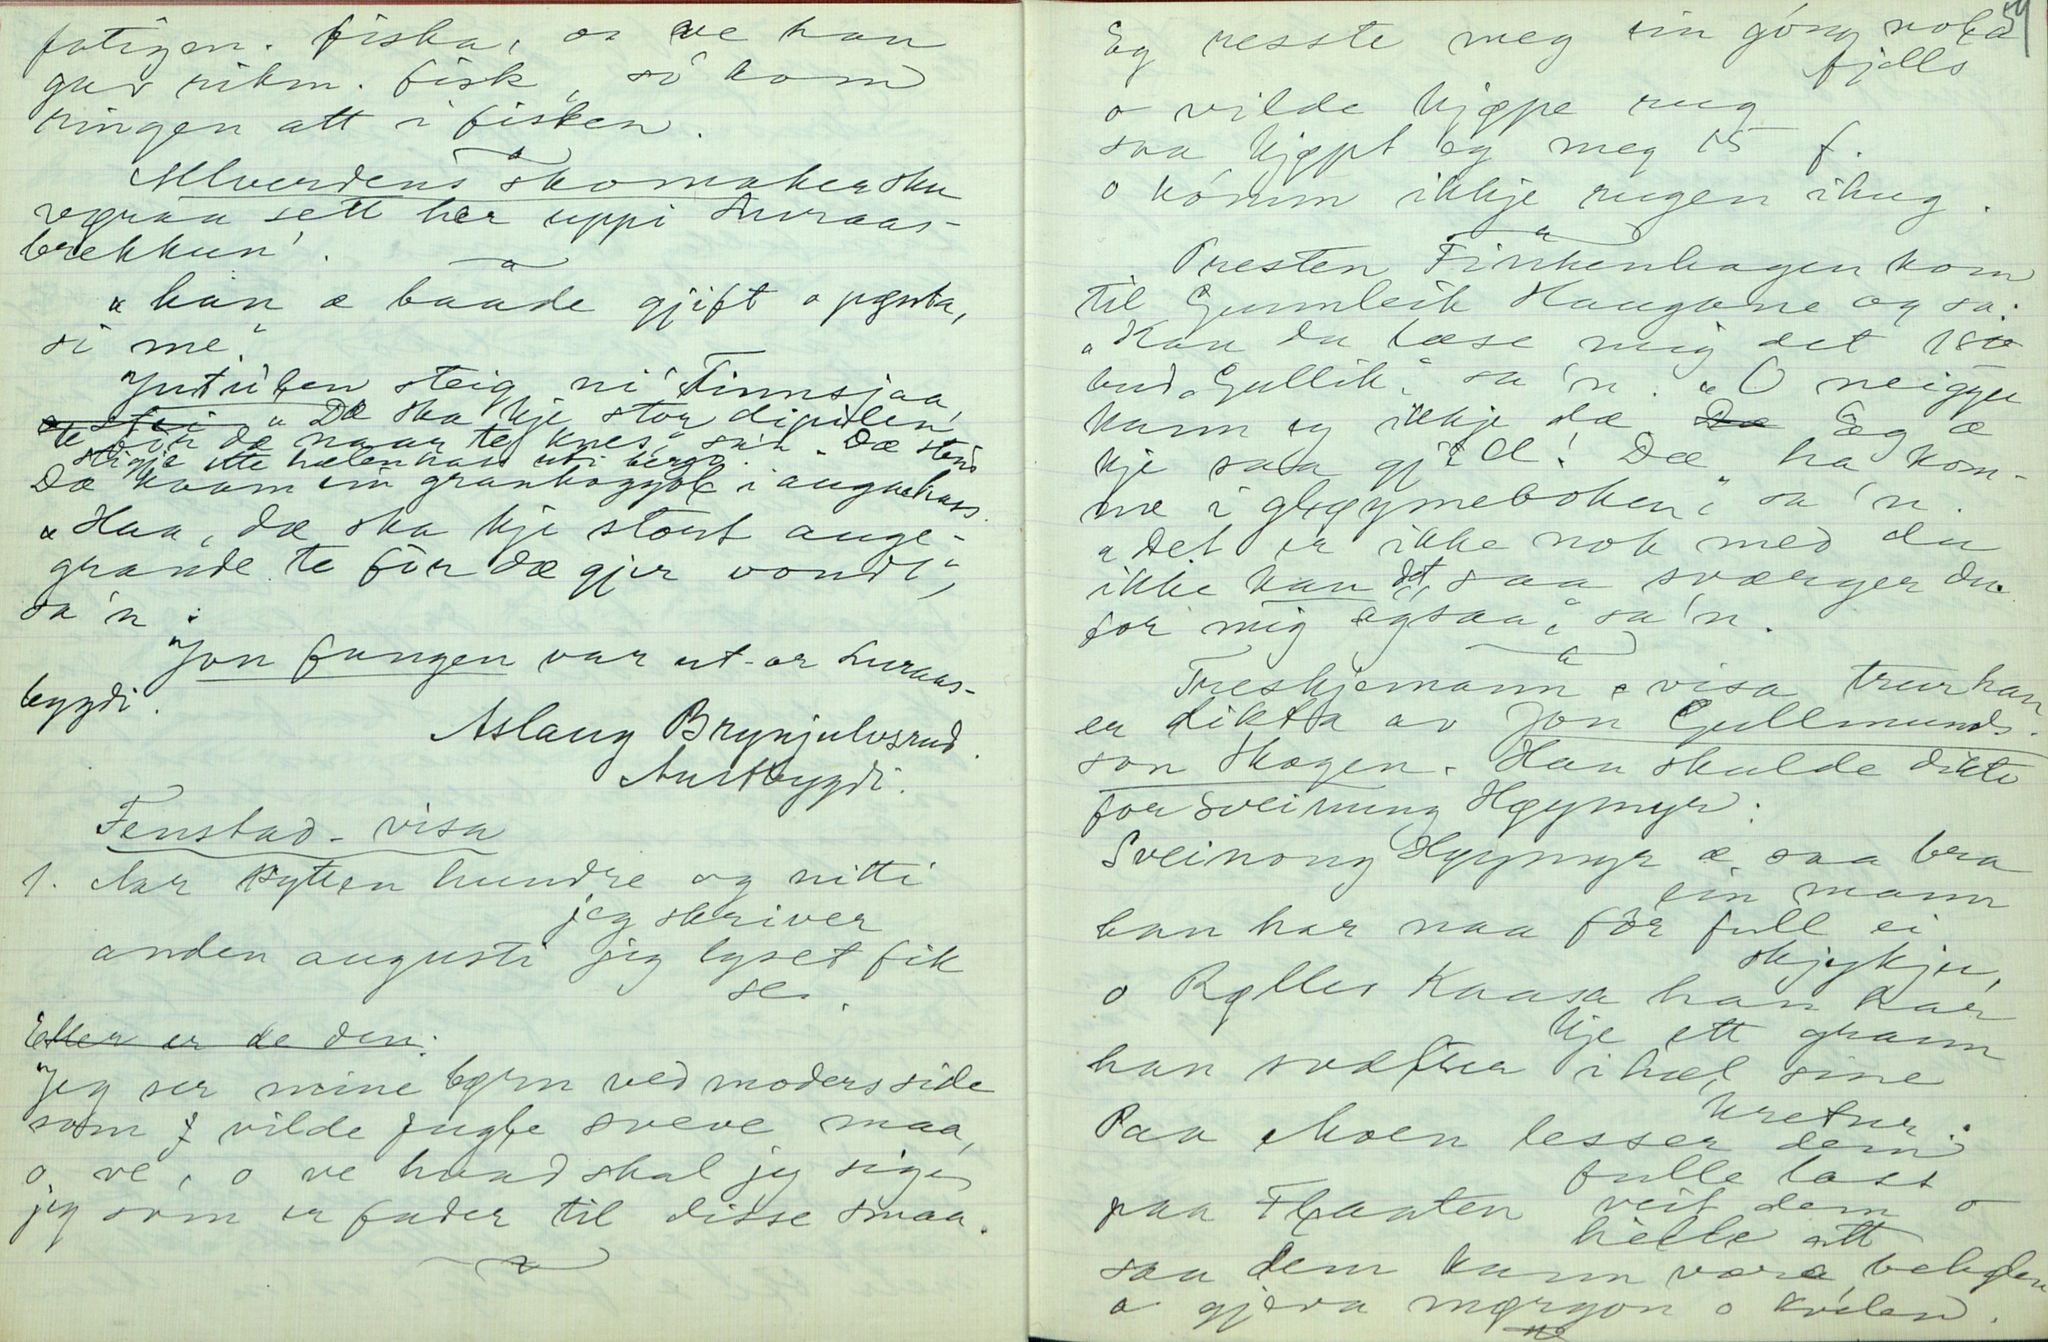 fatigem. fiska, os ve han
gav rikm. fisk, so kom
ringen att i fisken.
Allverdens skomaker sku
vøraa sett her uppi Luraas-
brekkun'.
"han æ baade gjift o pæsta,
si me".
"Jutulen steig ni' Finnsjaa,
"Dæ ska kje stor dipilen
te för dæ naar te knes," sa'n. Dæ stend
stigje ette hælen hass uti bergo.
Dæ kaam ein grankøggul i auga hass.
"Haa, dæ ska kje stort auge-
grande te för dæ gjer vondt",
sa'n.
"Jon fangen var ut-or Luraas-
bygdi.
Aslaug Brynjulvsrud.
Austbygdi.
Fenstad-visa
1. Aar atten hundre og nitti
jeg skriver
anden augusti jeg lyset fik
se.
Eller er de den:
"Jeg ser mine børn ved moders side
som vilde fugle sveve maa,
o ve, o ve hvad skal jeg sige,
jeg som er fader til disse smaa.
54
Eg resste meg ein gong nola
fjells
o vilde kjøpe rug
saa kjøpt eg meg 15 f.
o kómm ikkje rugen ihug.
Presten Finkenhagen kom
til Gunnleik Haugane og sa:
"Kan du læse mig det 18de
bud, Gullik." sa'n. "O neiggu
kann eg ikkje dæ Eg æ
kje saa gjild! Dæ ha kom-
me i gløymeboken," sa'n.
"Det er ikke nok med du
ikke kan det, saa sværger du
for mig ogsaa," sa'n.
Treskjemann-visa trur han
er dikta av Jon Gullmunds-
son Skogen. Han skulde dikte
for Sveinung Høymyr:
Sveinong Høymyr æ saa bra
ein mann
han har naa för full ei
skjykju,
o Rølleiv Kaasa han har
kje ett grann
han svælter ihæl sine
kretur.
Paa Moen lesser dem
fulle lass
paa Flaaten veit dem o
helle ått
saa dem kunn være behølen
o gjera mørgon o kvelen.